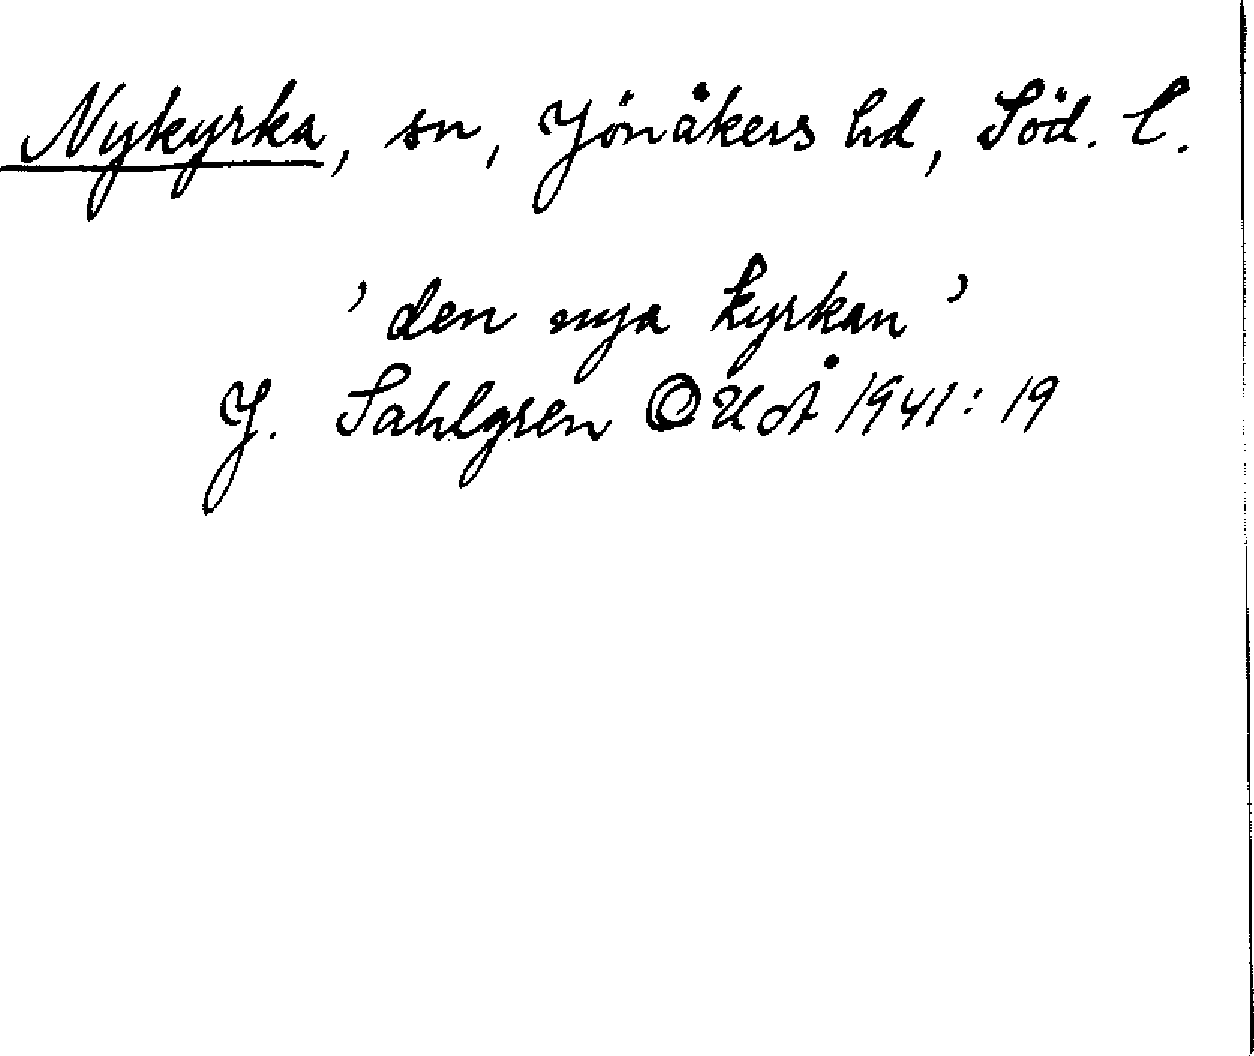 Nykyrka, sn, Jönåkers hd, Söd. l.
'den nya kyrkan'
J. Sahlgren OUoÅ 1941: 19